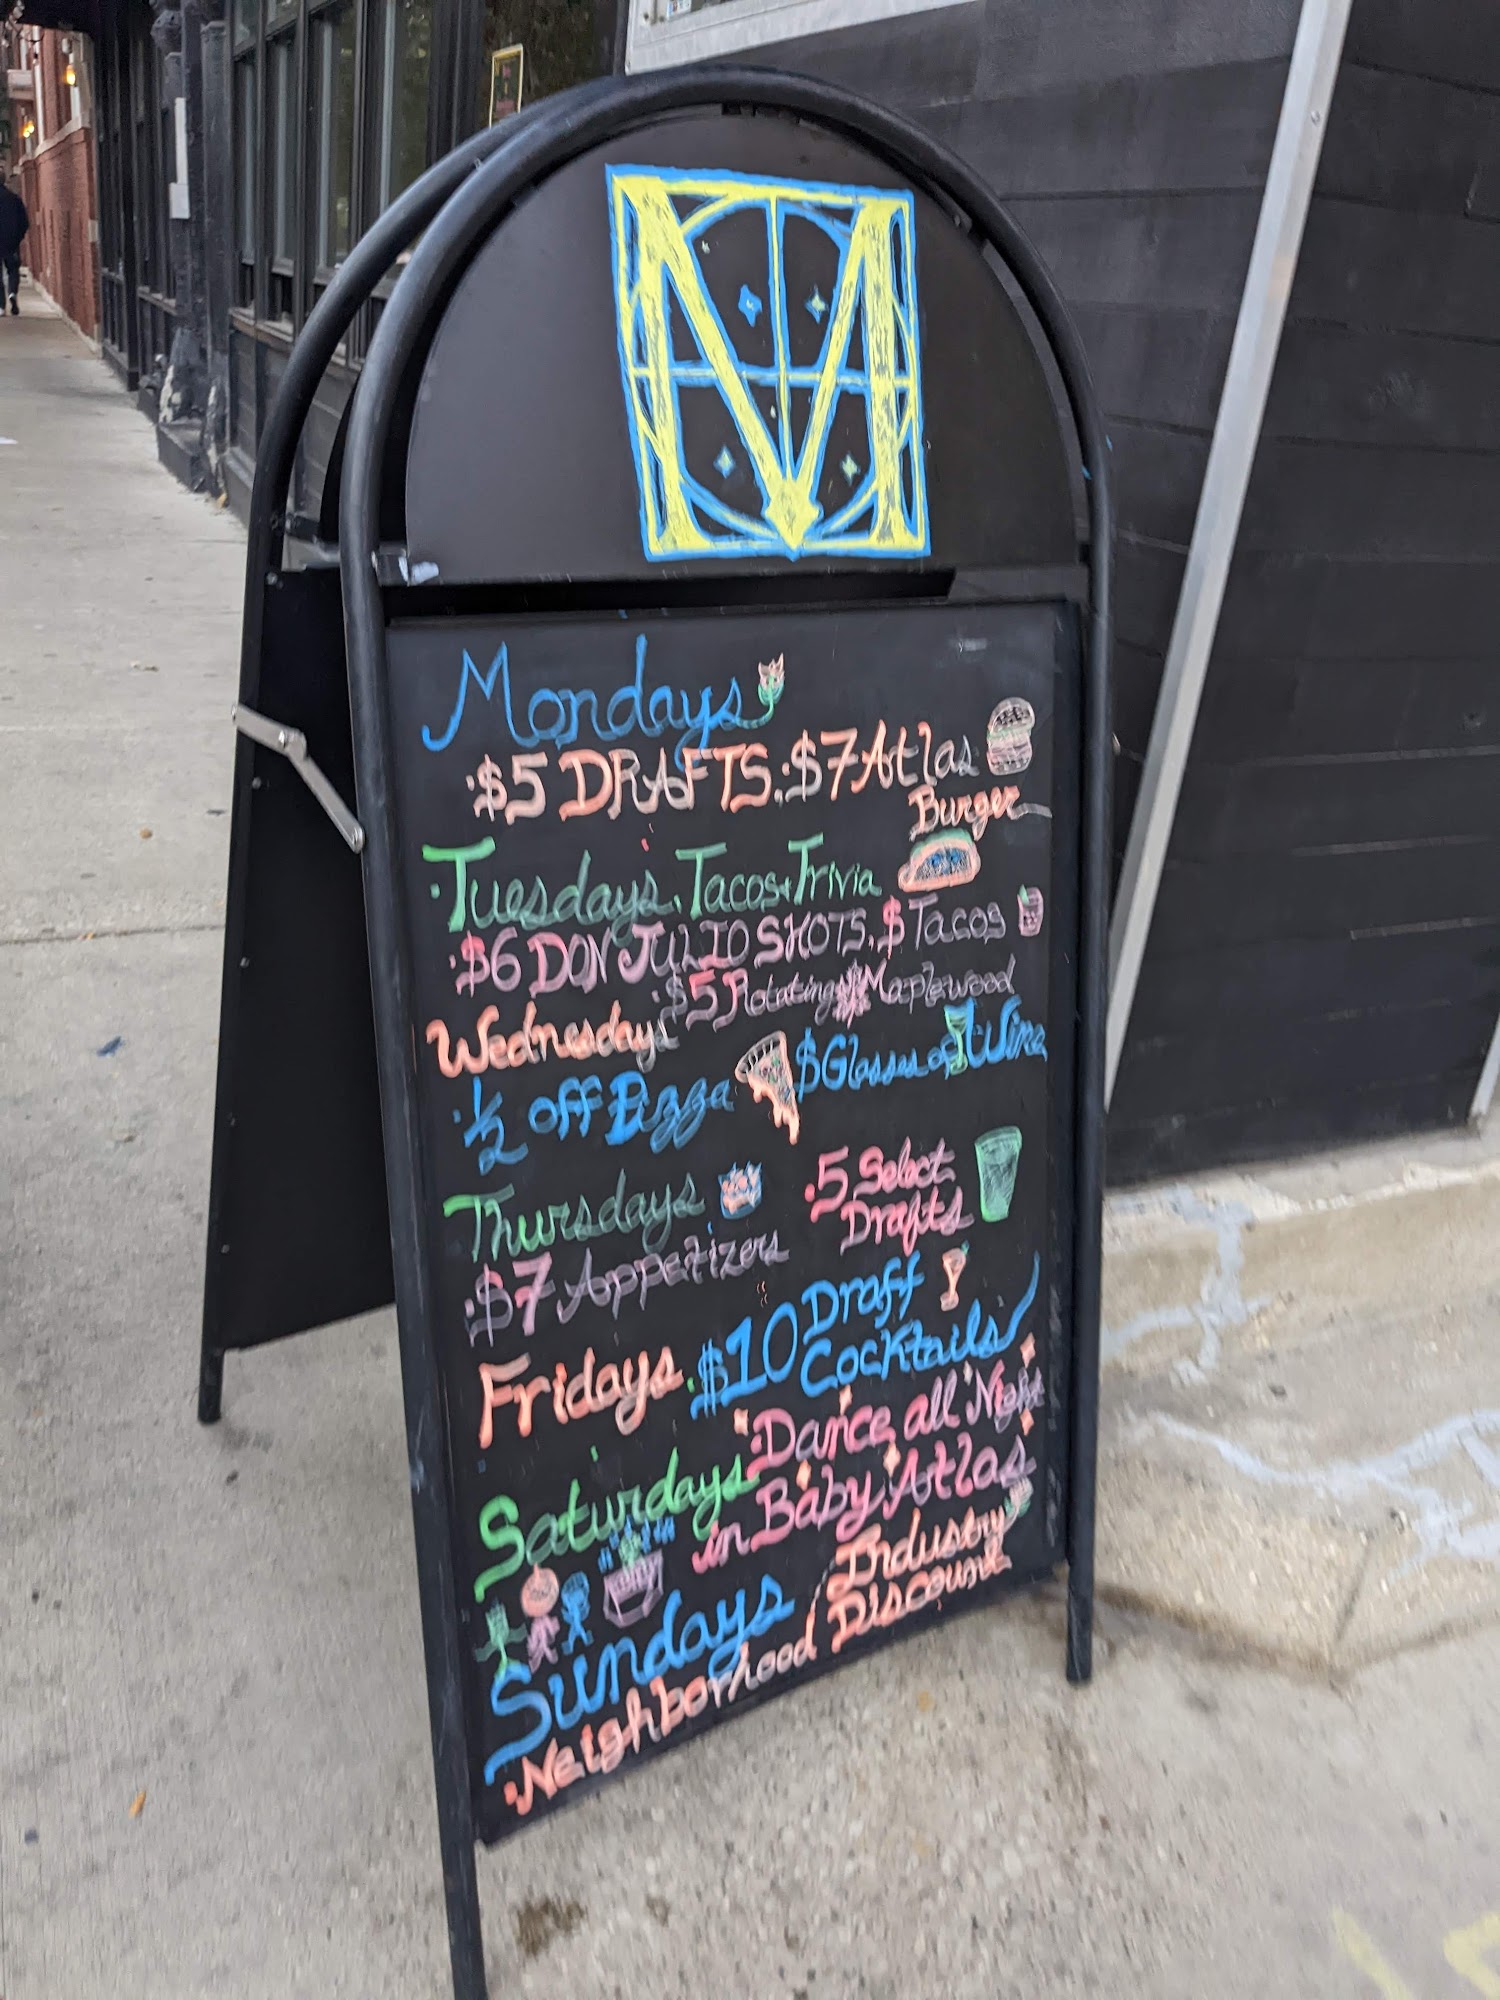 M
Mondays
$5 DRAFTS. $7 Atlas
Burger
Tuesdays. Tacos + Trivia
$6 DON JULIO SHOTS. $ Tacos
$5 Rotating Maplewood
Wednesdays
1/2 off Pizza $ Glasses of Wine
Thursdays
.5 Select
Drafts
$7 Appetizers
Fridays. $10 Draff
Cocktails
Saturdays Dance all Night
in Baby Atlas
Sundays Industry
Neighborhood Discount